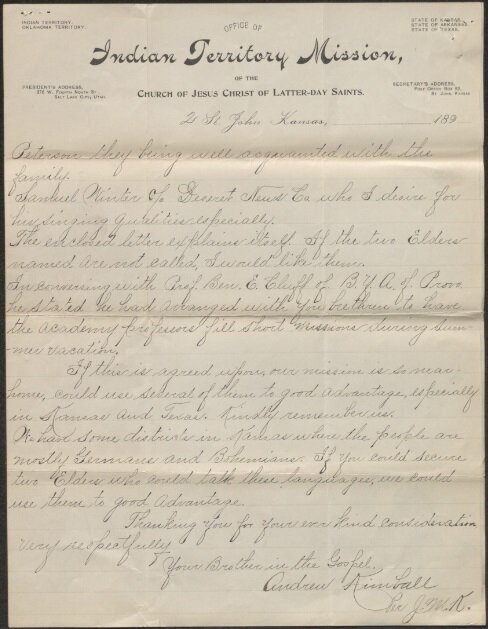 INDIAN TERRITORY.
OKLAHOMA TERRITORY.
STATE OF KANSAS.
STATE OF ARKANSAS.
STATE OF TEXAS.
OFFICE OF
Indian Territory Mission,
OF THE
CHURCH OF JESUS CHRIST OF LATTER-DAY SAINTS.
PRESIDENT'S ADDRESS,
276 W. Fourth North St.
SALT LAKE CITY, UTAH.
SECRETARY'S ADDRESS,
POST OFFICE BOX 92,
St. John, Kansas
2 St John Kansas, 189
Peterson they being well acquainted with the
family.
Samuel Winter c/o Deseret News Co who I desire for
his singing qualities especially.
The enclosed letter explains itself. If the two Elders
named are not called, I would like them.
In conversing with Prof. Ben. E. Cluff of B. Y. A. of Provo
he stated he had arranged with you brethren to have
the Academy professors fill short missions during sum-
-mer vacation.
If this is agreed upon, our mission is so near
home, could use several of them to good advantage, especially
in Kansas and Texas. Kindly remember us.
We have some districts in Kansas where the people are
mostly Germans and Bohemians. If you could secure
two Elders who could talk these languages, we could
use them to good advantage.
Thanking you for your ever kind consideration
Very respectfully
Your Brother in the Gospel.
Andrew Kimball
Per J. W. K.